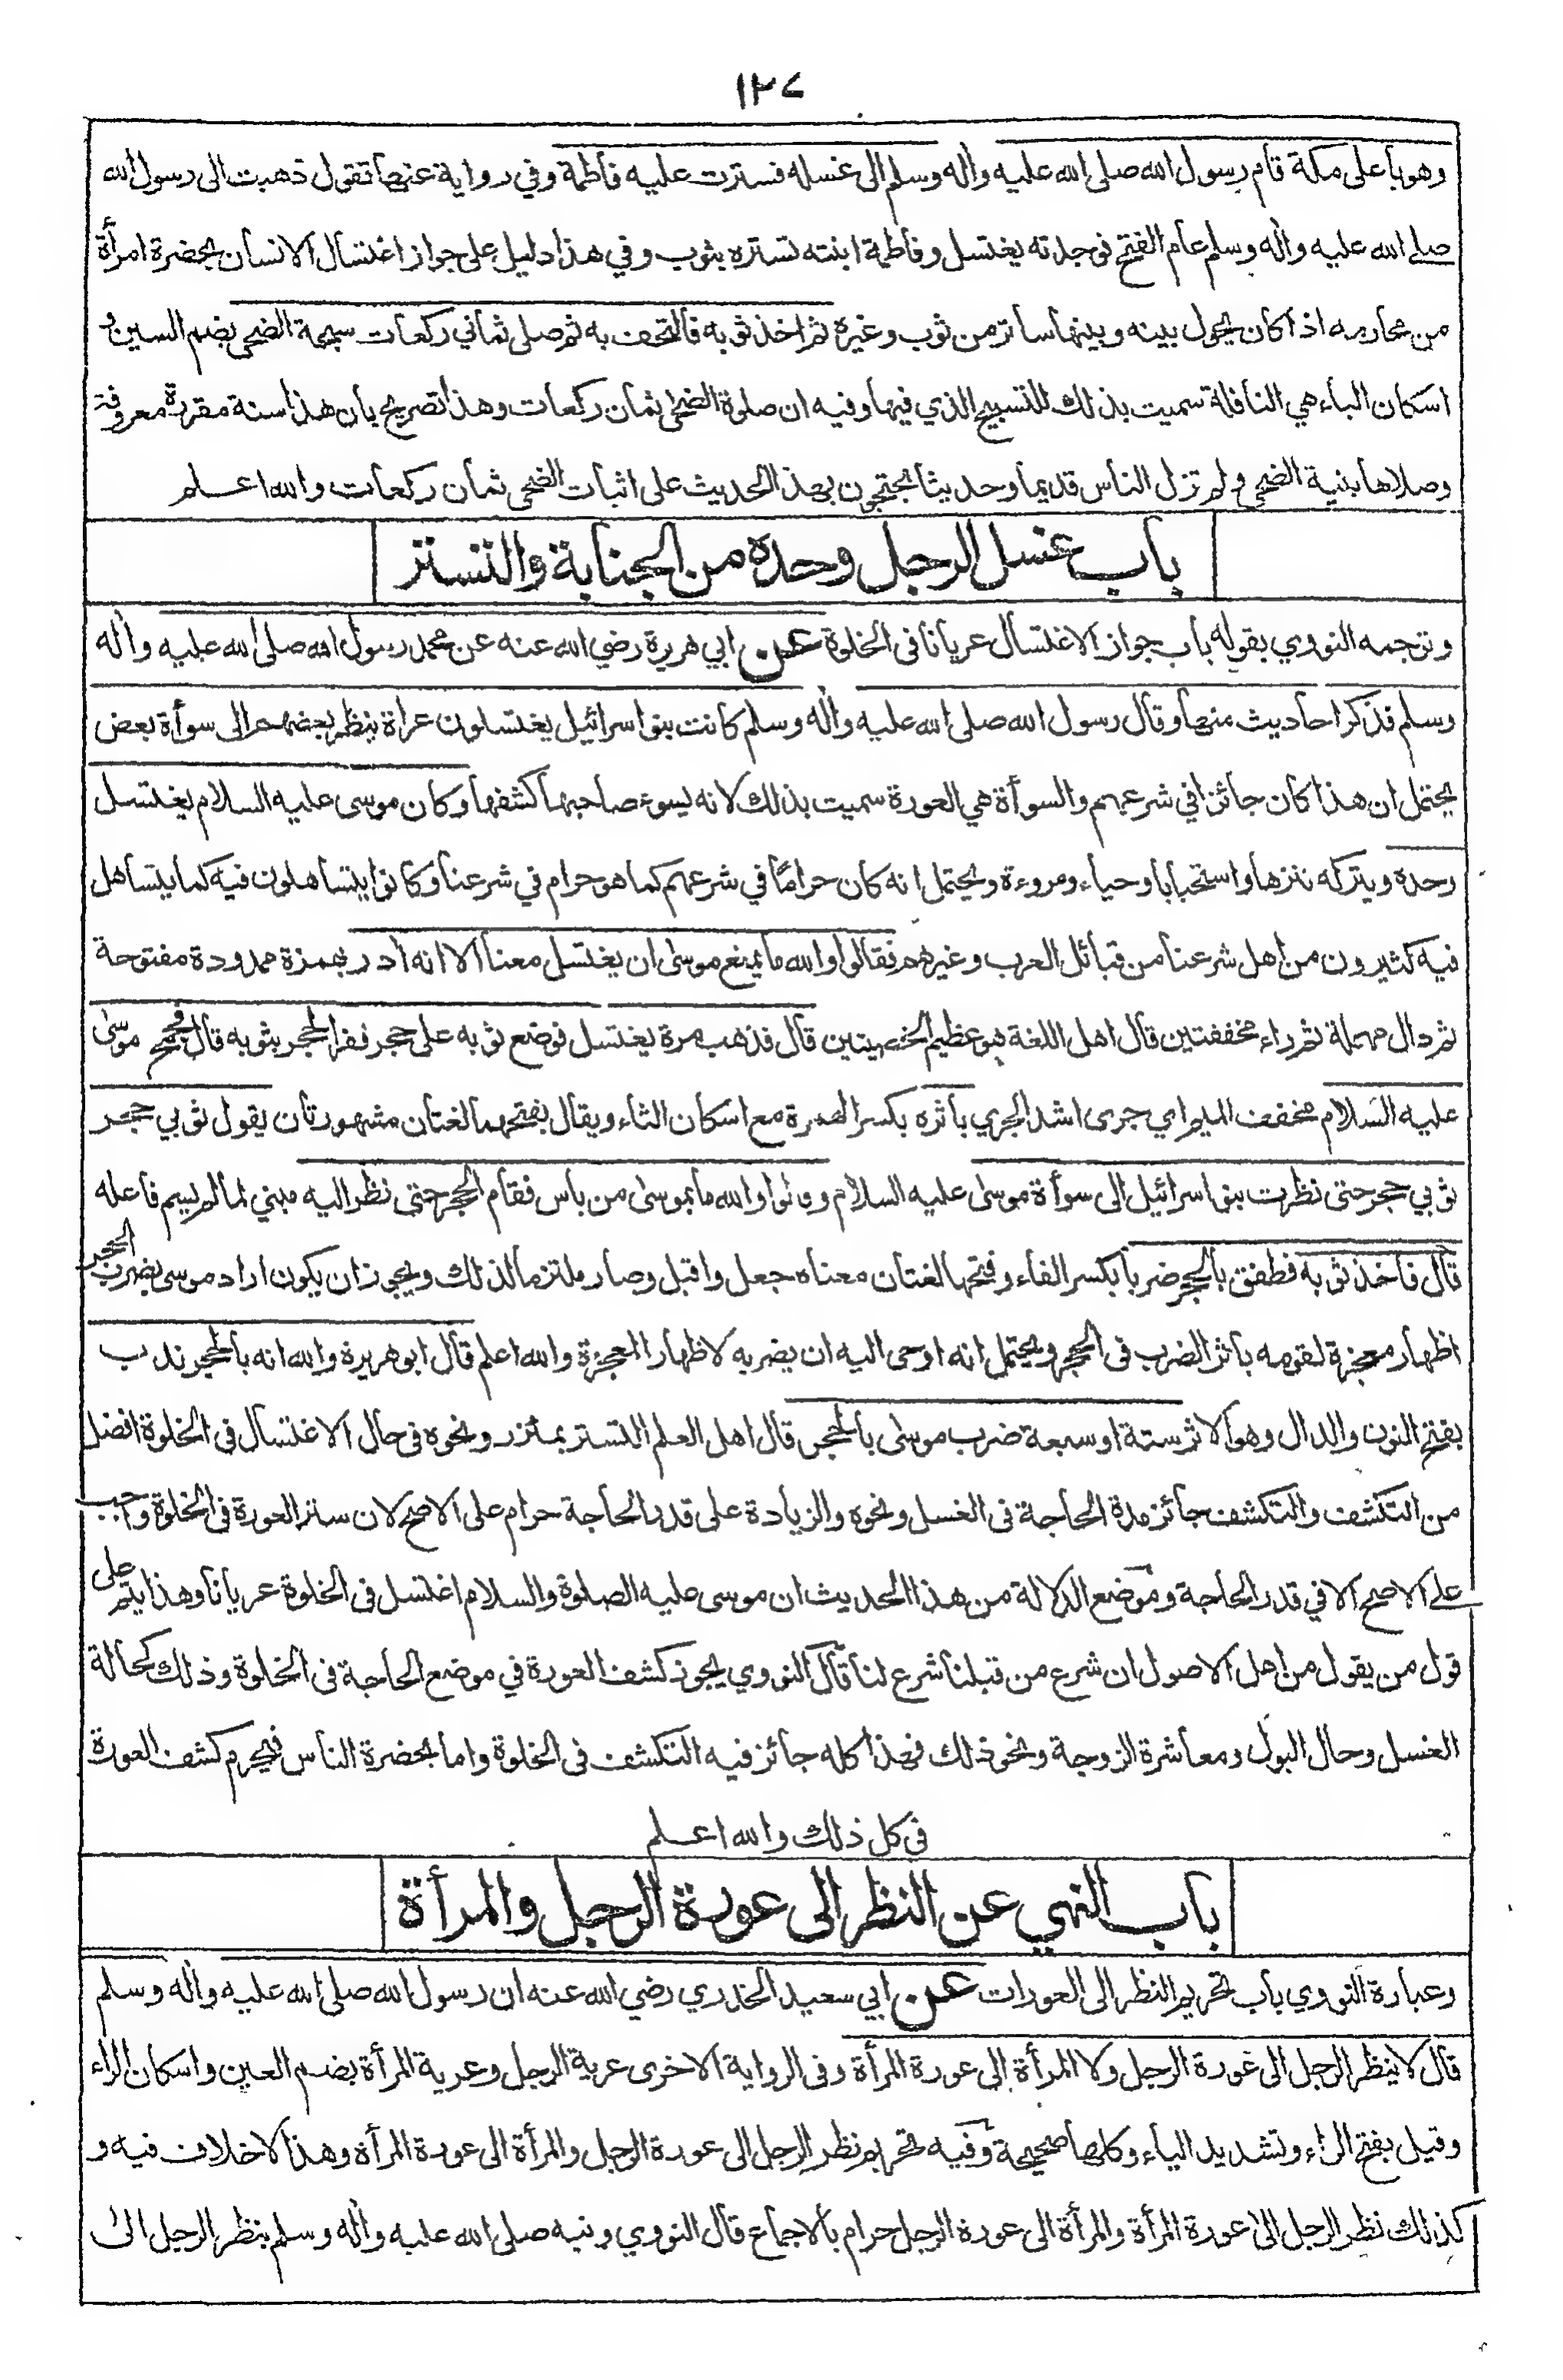 ١٢٧
وهو بأعلى مكة قام رسول الله صلى الله عليه وآله وسلم الى غسله فسترت عليه فاطمة وفي رواية عنها تقول ذهبت الى رسول الله
صلى الله عليه وآله وسلم عام الفتح فوجدته يغتسل وفاطمة ابنته تستره بثوب وفي هذا دليل على جواز اغتسال الانسان بحضرة امرأة
من محارمه اذا كان يحول بينه وبينها ساتر من ثوب وغيره ثم اخذ ثوبه فالتحف به ثم صلى ثماني ركعات سبحة الضحى بضم السين و
اسكان الباء هي النافلة سميت بذلك للتسبيح الذي فيها وفيه ان صلوة الضحى ثمان ركعات وهذا تصريح بان هذا سنة مقررة معروفة
وصلاها بنية الضحى ولم تزل الناس قديما وحديثا يحتجون بهذا الحديث على اثبات الضحى ثمان ركعات والله اعلم
باب غسل الرجل وحده من الجنابة والتستر
وترجمه النووي بقوله باب جواز الاغتسال عريانا فى الخلوة عن ابي هريرة رضي الله عنه عن محمد رسول الله صلى الله عليه وآله
وسلم فذكر احاديث منها وقال رسول الله صلى الله عليه وآله وسلم كانت بنو اسرائيل يغتسلون عراة ينظر بعضهم الى سوأة بعض
يحتمل ان هذا كان جائزا في شرعهم والسوأة هي العورة سميت بذلك لانه يسوء صاحبها كشفها وكان موسى عليه السلام يغتسل
وحده ويتركه تنزها واستحبابا وحياء ومروءة ويحتمل انه كان حراما في شرعهم كما هو حرام في شرعنا وكانوا يتساهلون فيه كما يتساهل
فيه كثيرون من اهل شرعنا من قبائل العرب وغيرهم فقالوا والله ما يمنع موسى ان يغتسل معنا الا انه آدر بهمزة ممدودة مفتوحة
ثم دال مهملة ثم راء مخففتين قال اهل اللغة هو عظيم الخصيتين قال فذهب مرة يغتسل فوضع ثوبه على حجر ففر الحجر بثوبه قال فجمح موسى
عليه السلام مخفف الميم اي جرى اشد الجري بأثره بكسر الهمزة مع اسكان الثاء ويقال بفتحهما لغتان مشهورتان يقول ثوبي حجر
ثوبي حجر حتى نظرت بنو اسرائيل الى سوأة موسى عليه السلام وقالوا والله ما بموسى من باس فقام الحجر حتى نظر اليه مبني لما لم يسم فاعله
قال فاخذ ثوبه فطفق بالحجر ضربا بكسر الفاء وفتحها لغتان معناه جعل واقبل وصار ملتزما لذلك ويجوز ان يكون اراد موسى بضرب الحجر
اظهار معجزة لقومه باثر الضرب فى الحجر ويحتمل انه اوحى اليه ان يضربه لاظهار المعجزة والله اعلم قال ابو هريرة والله انه بالحجر ندب
بفتح النون والدال وهو الاثر ستة او سبعة ضرب موسى بالحجر قال اهل العلم التستر بمئزر ونحوه في حال الاغتسال فى الخلوة افضل
من التكشف والتكشف جائز مدة الحاجة فى الغسل ونحوه والزيادة على قدر الحاجة حرام على الاصح لان ستر العورة فى الخلوة واجب
على الاصح الا في قدر الحاجة وموضع الدلالة من هذا الحديث ان موسى عليه الصلوة والسلام اغتسل فى الخلوة عريانا وهذا يتم على
قول من يقول من اهل الاصول ان شرع من قبلنا شرع لنا قال النووي يجوز كشف العورة في موضع الحاجة فى الخلوة وذلك كحالة
الغسل وحال البول ومعاشرة الزوجة ونحو ذلك فهذا كله جائز فيه التكشف فى الخلوة واما بحضرة الناس فيحرم كشف العورة
في كل ذلك والله اعلم
باب النهي عن النظر الى عورة الرجل والمرأة
وعبارة النووي باب تحريم النظر الى العورات عن ابي سعيد الخدري رضي الله عنه ان رسول الله صلى الله عليه وآله وسلم
قال لا ينظر الرجل الى عورة الرجل ولا المرأة الى عورة المرأة وفى الرواية الاخرى عرية الرجل وعرية المرأة بضم العين واسكان الراء
وقيل بفتح الراء وتشديد الياء وكلها صحيحة وفيه تحريم نظر الرجل الى عورة الرجل والمرأة الى عورة المرأة وهذا لا خلاف فيه و
كذلك نظر الرجل الى عورة المرأة والمرأة الى عورة الرجل حرام بالاجماع قال النووي ونبه صلى الله عليه وآله وسلم بنظر الرجل الى